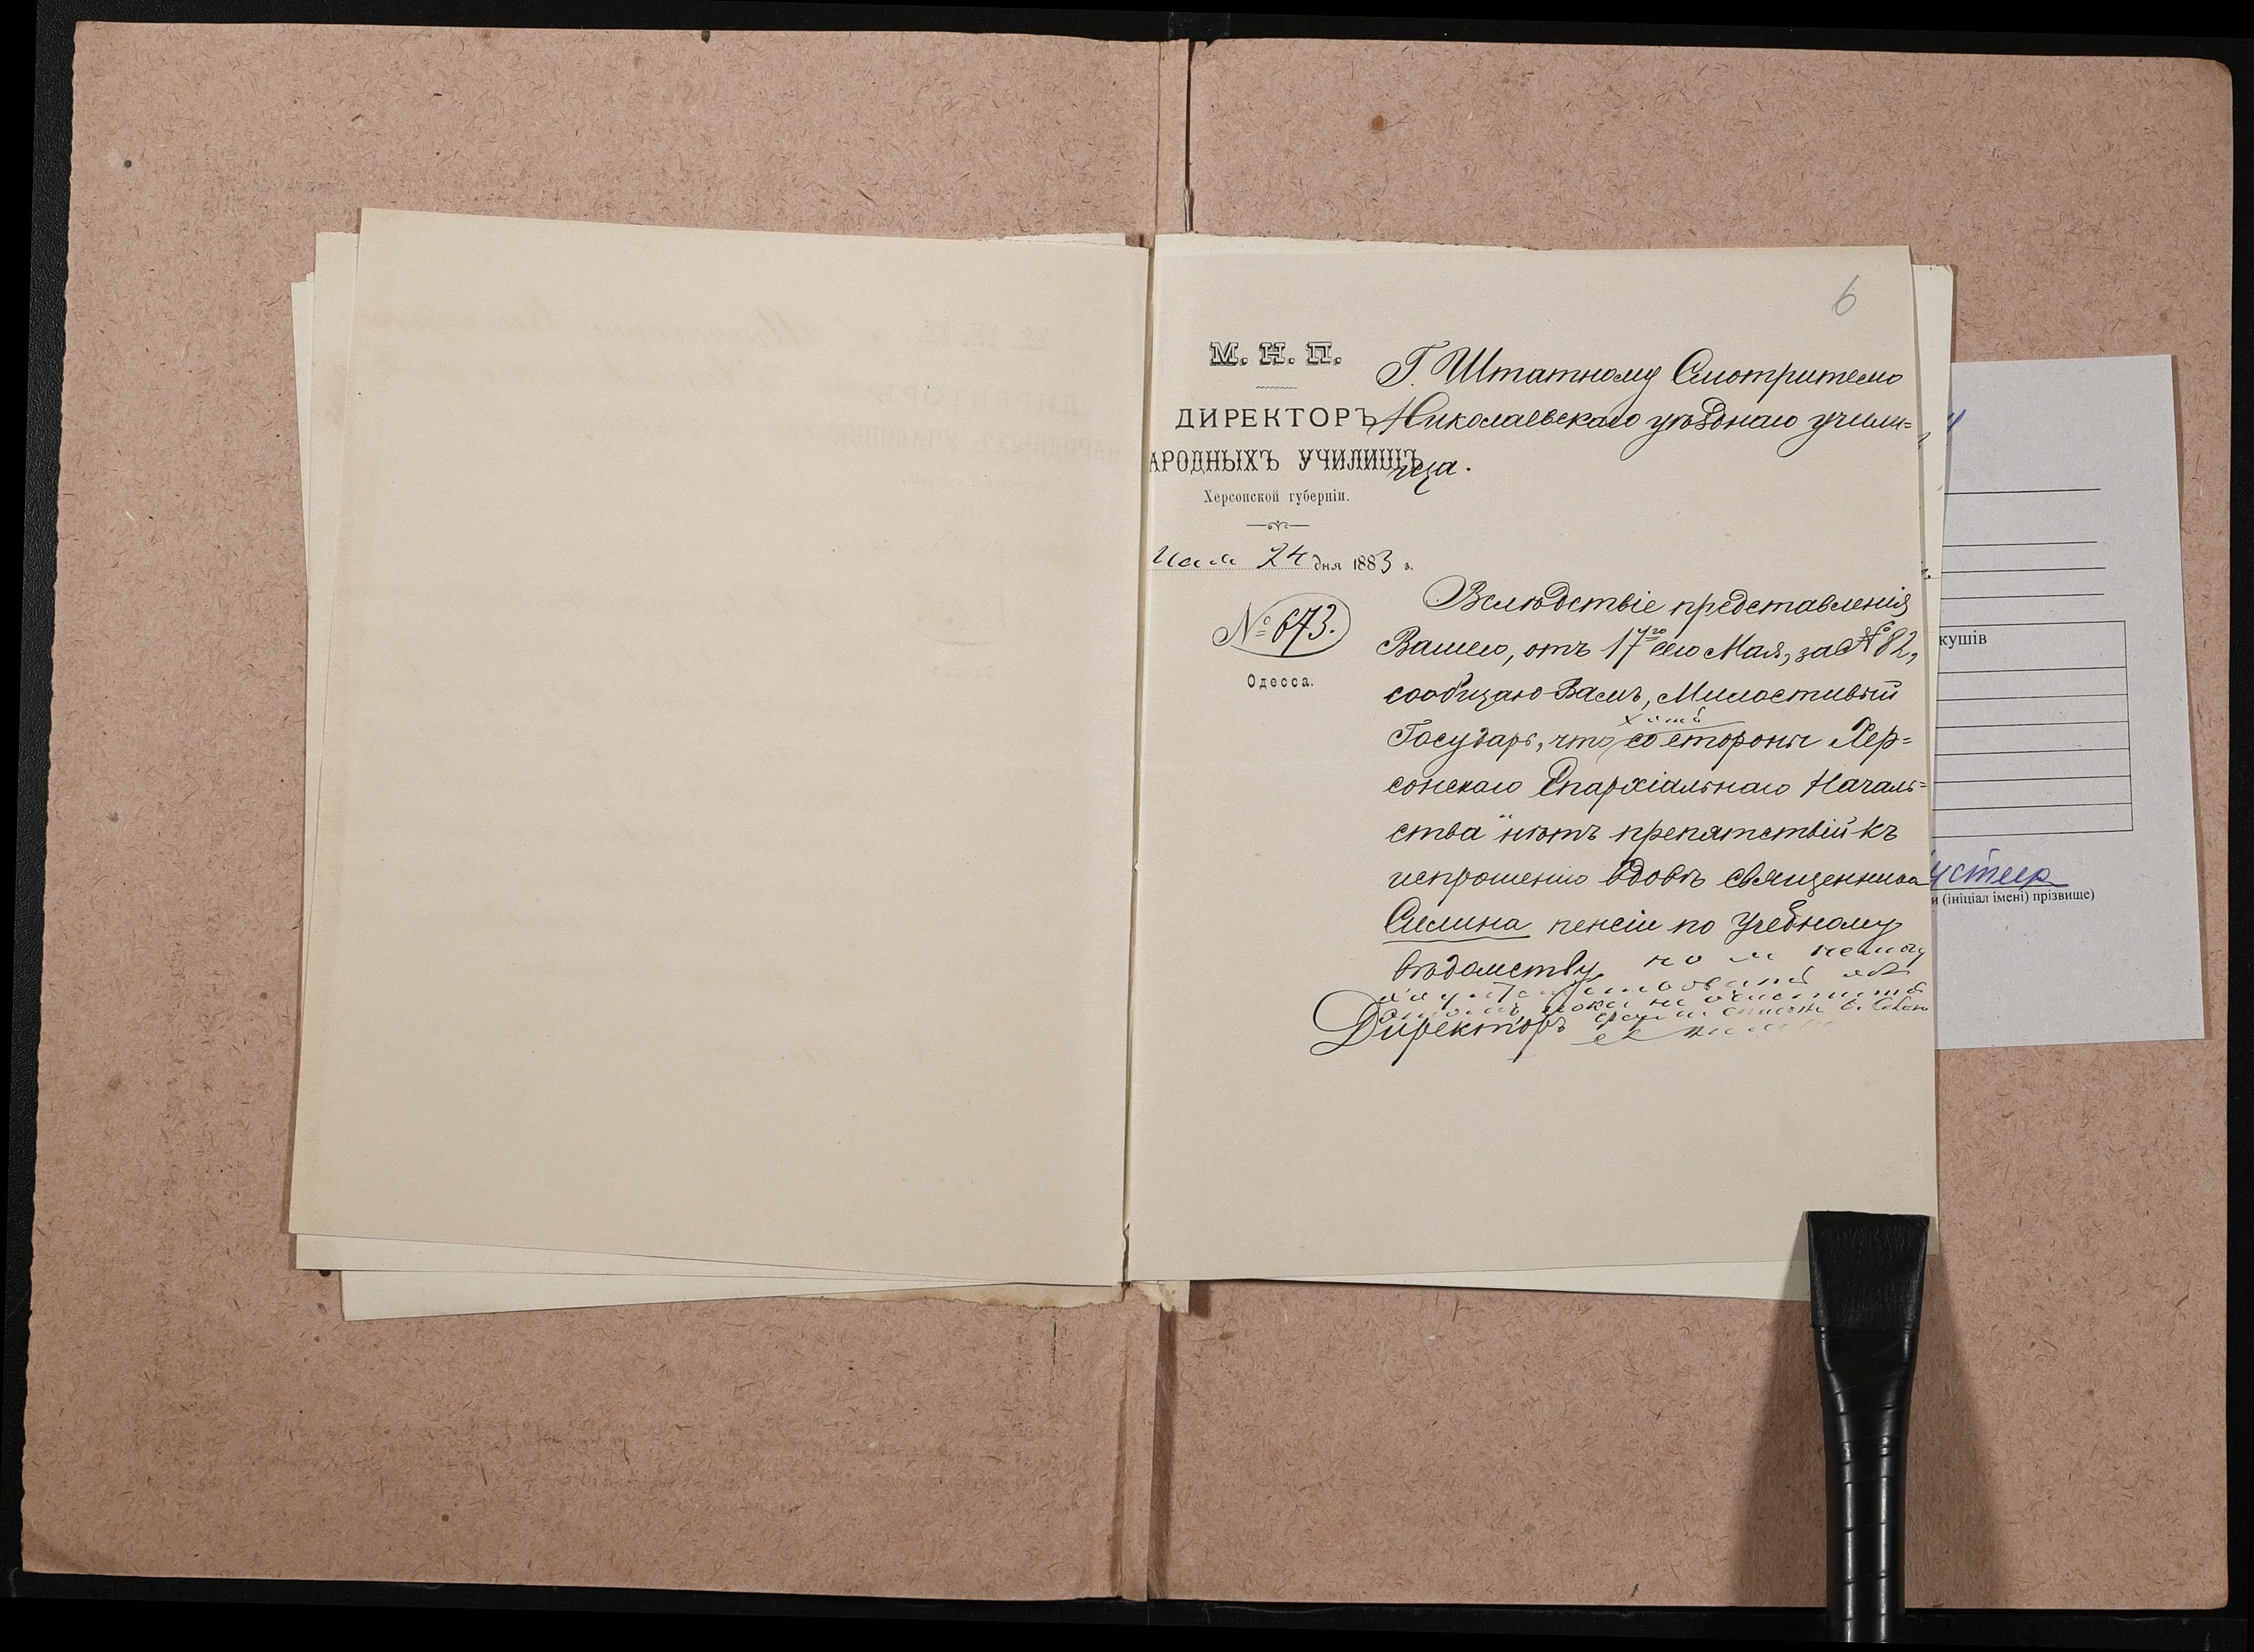 6
М. Н. П.
ДИРЕКТОРЪ
АРОДНЫХЪ УЧИЛИЩЪ
Херсонской губерніи.
Мая 24 дня 1883 г.
№ 673.
Одесса.
Г. Штатному Смотрителю
Николаевскаго уѣзднаго учили=
ща.
Вслѣдствіе представленія
Вашего, отъ 17го сего Мая, за № 82,
сообщаю Вамъ, Милостивый
хотя
Государь, что со стороны Хер=
сонскаго Епархіальнаго Началь=
ства нѣтъ препятствій къ
испрошенію вдовѣ священника
Силина пенсіи по Учебному
вѣдомству, но я не могу
пока не
Директоръ
кушів
и (ініціал імені) прізвище)